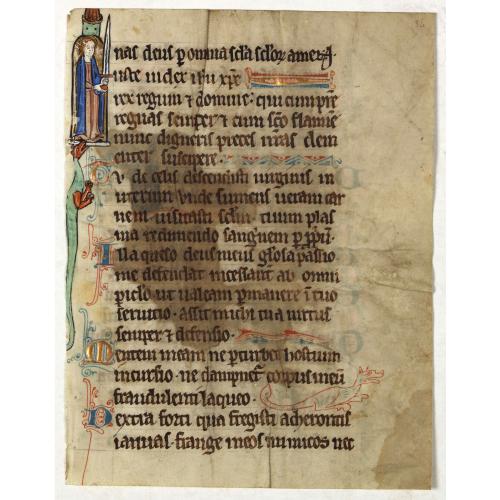 nas deus p omnia scła scłor amen
uste iudex ihu xpe
rex regum ⁊ domine: qui cum pre
regnas semper ⁊ cum sco flamine
nunc digneris preces nras clem
enter suscipere.
Tu de celis descendisti uirginis in
uterum unde sumens ueram car
nem uisitasti sclm tuum plas
ma redimendo sanguinem p ppm.
Illa queso deus meus głosa passio
me defendat incessant ab omni
piclo. ut ualeam permanere i tuo
seruitio. assit michi tua uirtus
semper ⁊ defensio.
Mentem meam ne perturbet hostium
incursio. ne dampnet corpus meu
fraudulenti laqueo.
Dextra forti qua fregisti acherontis
ianuas. frange meos inimicos nec